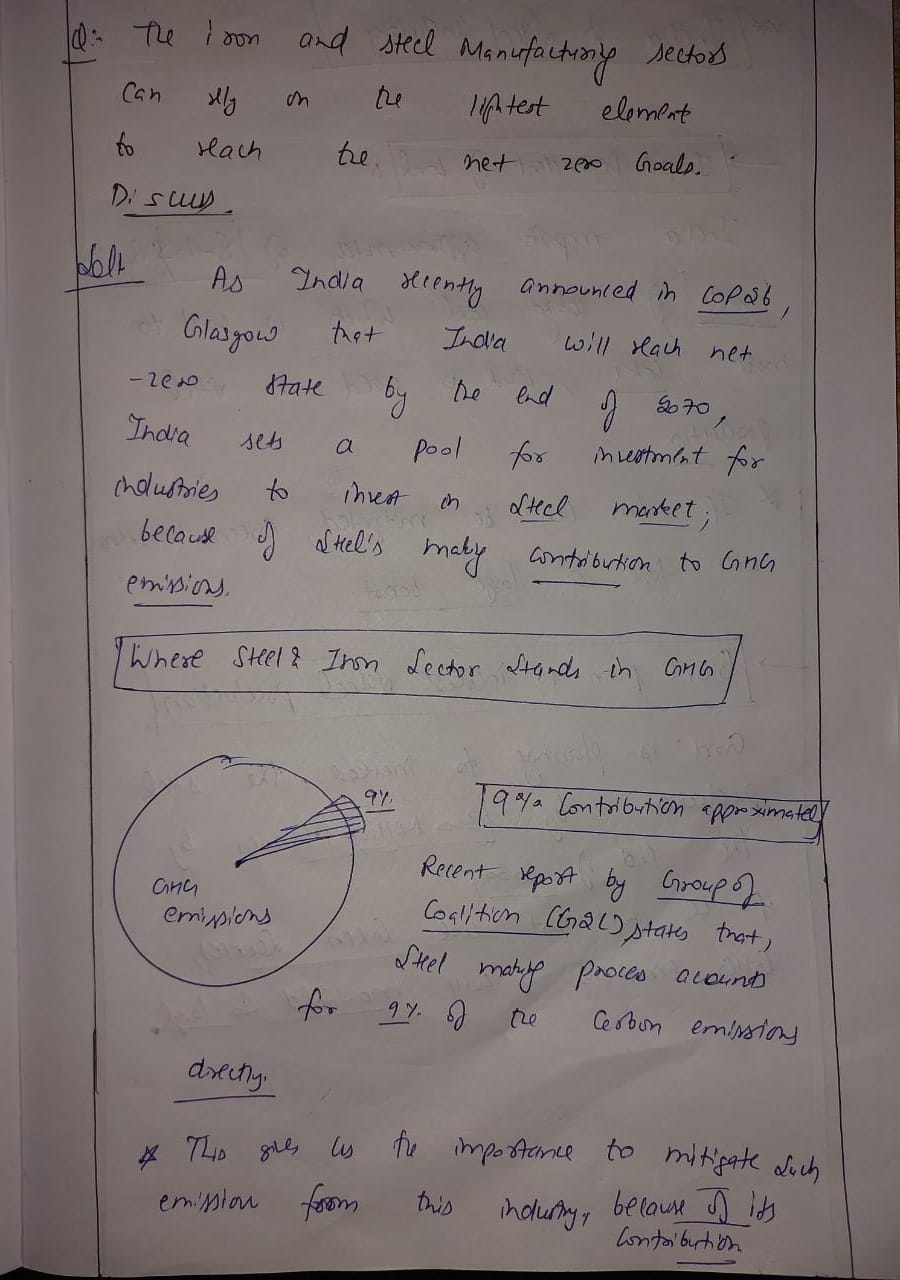 Q:- The iron and steel Manufacturing sectors
can rely on the lightest element
to reach the net zero Goals.
Discuss.
Sol:-
As India recently announced in COP26,
Glasgow that India will reach net
-zero state by the end of 2070,
India sets a pool for investment for
industries to invest in steel market;
because of steel's making contribution to GHG
emissions.
Where Steel & Iron Sector Stands in GHG
9%.
9% Contribution approximately
GHG
emissions
Recent report by Group of
Coalition (G2C) states that,
Steel making process accounts
for 9% of the Carbon emissions
directly.
* This gives us the importance to mitigate such
emission from this industry, because of its
contribution